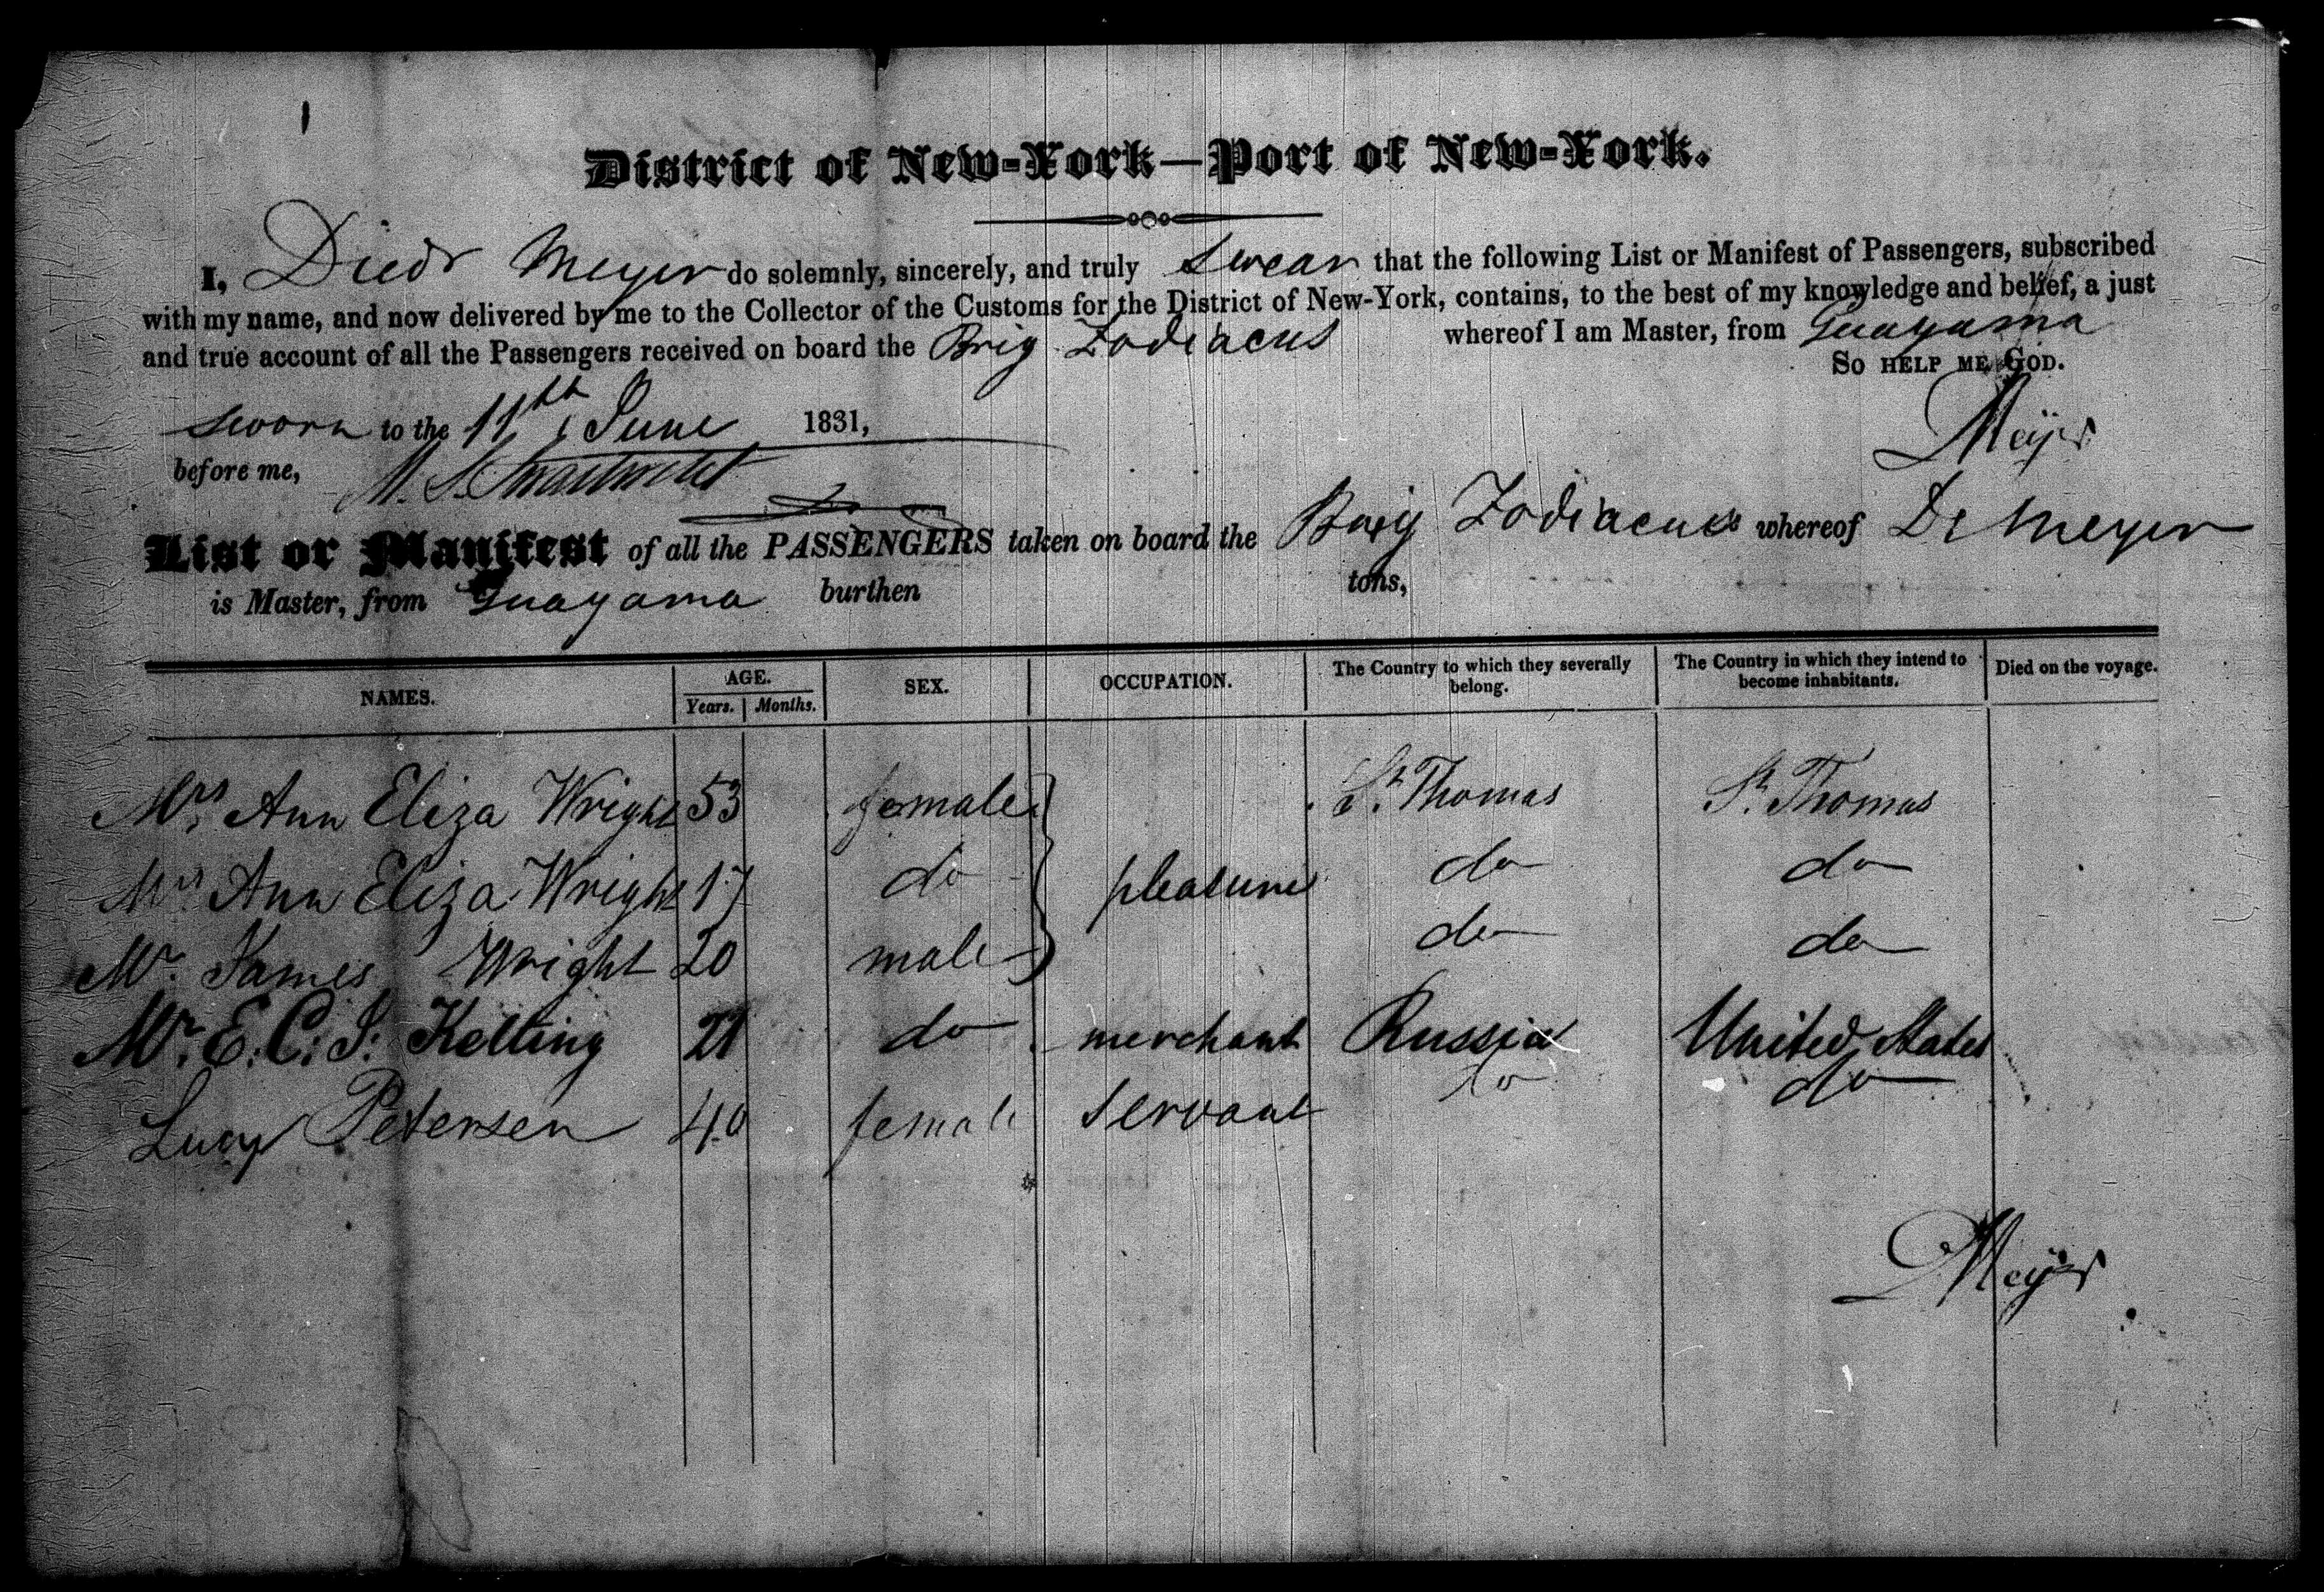 District of New-York—Port of New-York.
I, Diedr Meyer do solemnly, sincerely, and truly Swear that the following List or Manifest of Passengers, subscribed
with my name, and now delivered by me to the Collector of the Customs for the District of New-York, contains, to the best of my knowledge and belief, a just
and true account of all the Passengers received on board the Brig Zodiacus whereof I am Master, from Guayama
So help me God.
Sworn to the 11th June 1831,
Meyer
before me, M. S. Swartwout
List or Manifest of all the PASSENGERS taken on board the Brig Zodiacus whereof D. Meyer
is Master, from Guayama burthen tons,
NAMES. AGE. Years. Months. SEX. OCCUPATION. The Country to which they severally belong. The Country in which they intend to become inhabitants. Died on the voyage.
Mrs Ann Eliza Wright 53 female St. Thomas St. Thomas
Mrs Ann Eliza Wright 17 do pleasure do do
Mr. James Wright 20 male do do
Mr. E. C. J. Kelting 21 do merchant Russia United States
Lucy Petersen 40 female Servant do do
DMeyer